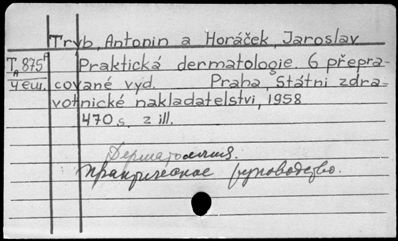 Tryb, Antonin a Horáček, Jaroslav
T 875 Praktická dermatologie. 6 přepra-
A
4 ези. cované vyd. Praha, Státni zdra-
votnické nakladatelstvi, 1958
470 s. z ill.
Дерматология.
практическое руководство.